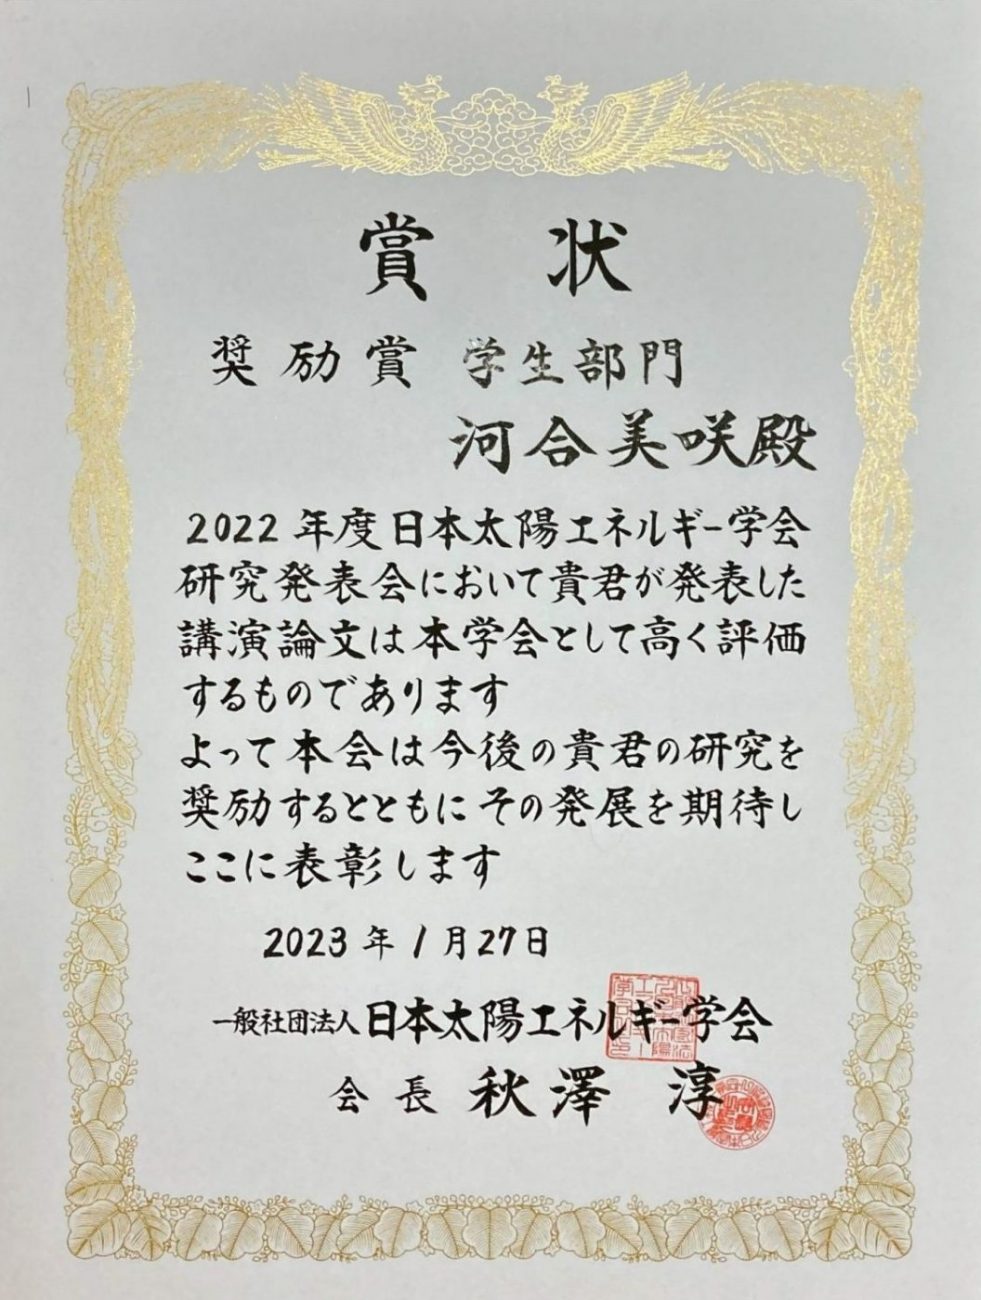 賞状
奨励賞 学生部門
河合美咲殿
2022年度日本太陽エネルギー学会
研究発表会において貴君が発表した
講演論文は本学会として高く評価
するものであります
よって本会は今後の貴君の研究を
奨励するとともにその発展を期待し
ここに表彰します
2023年1月27日
一般社団法人日本太陽エネルギー学会
会長 秋澤 淳